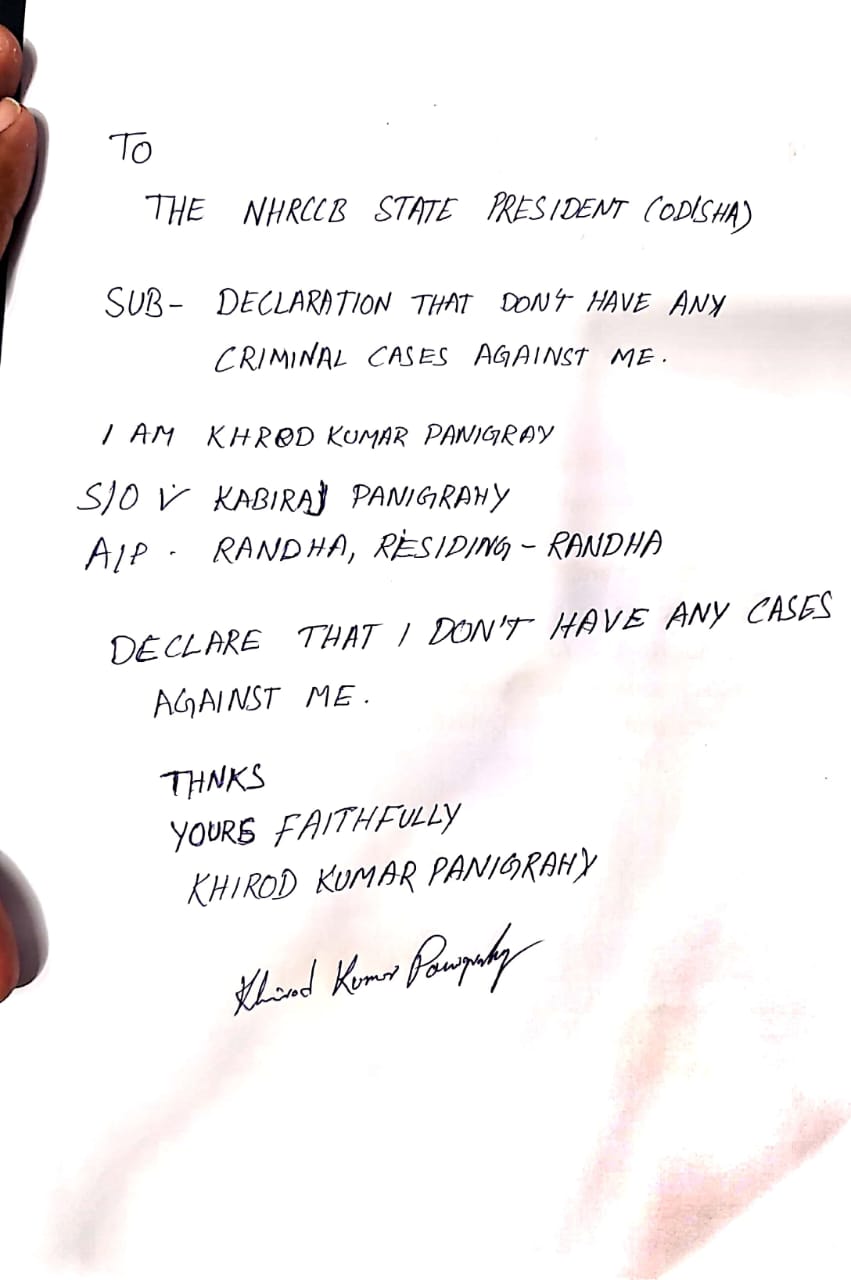 TO
THE NHRCCB STATE PRESIDENT (ODISHA)
SUB- DECLARATION THAT DON'T HAVE ANY
CRIMINAL CASES AGAINST ME.
I AM KHROD KUMAR PANIGRAY
S/O KABIRAJ PANIGRAHY
A/P - RANDHA, RESIDING - RANDHA
DECLARE THAT I DON'T HAVE ANY CASES
AGAINST ME.
THNKS
YOURS FAITHFULLY
KHIROD KUMAR PANIGRAHY
Khirod Kumar Panigrahy